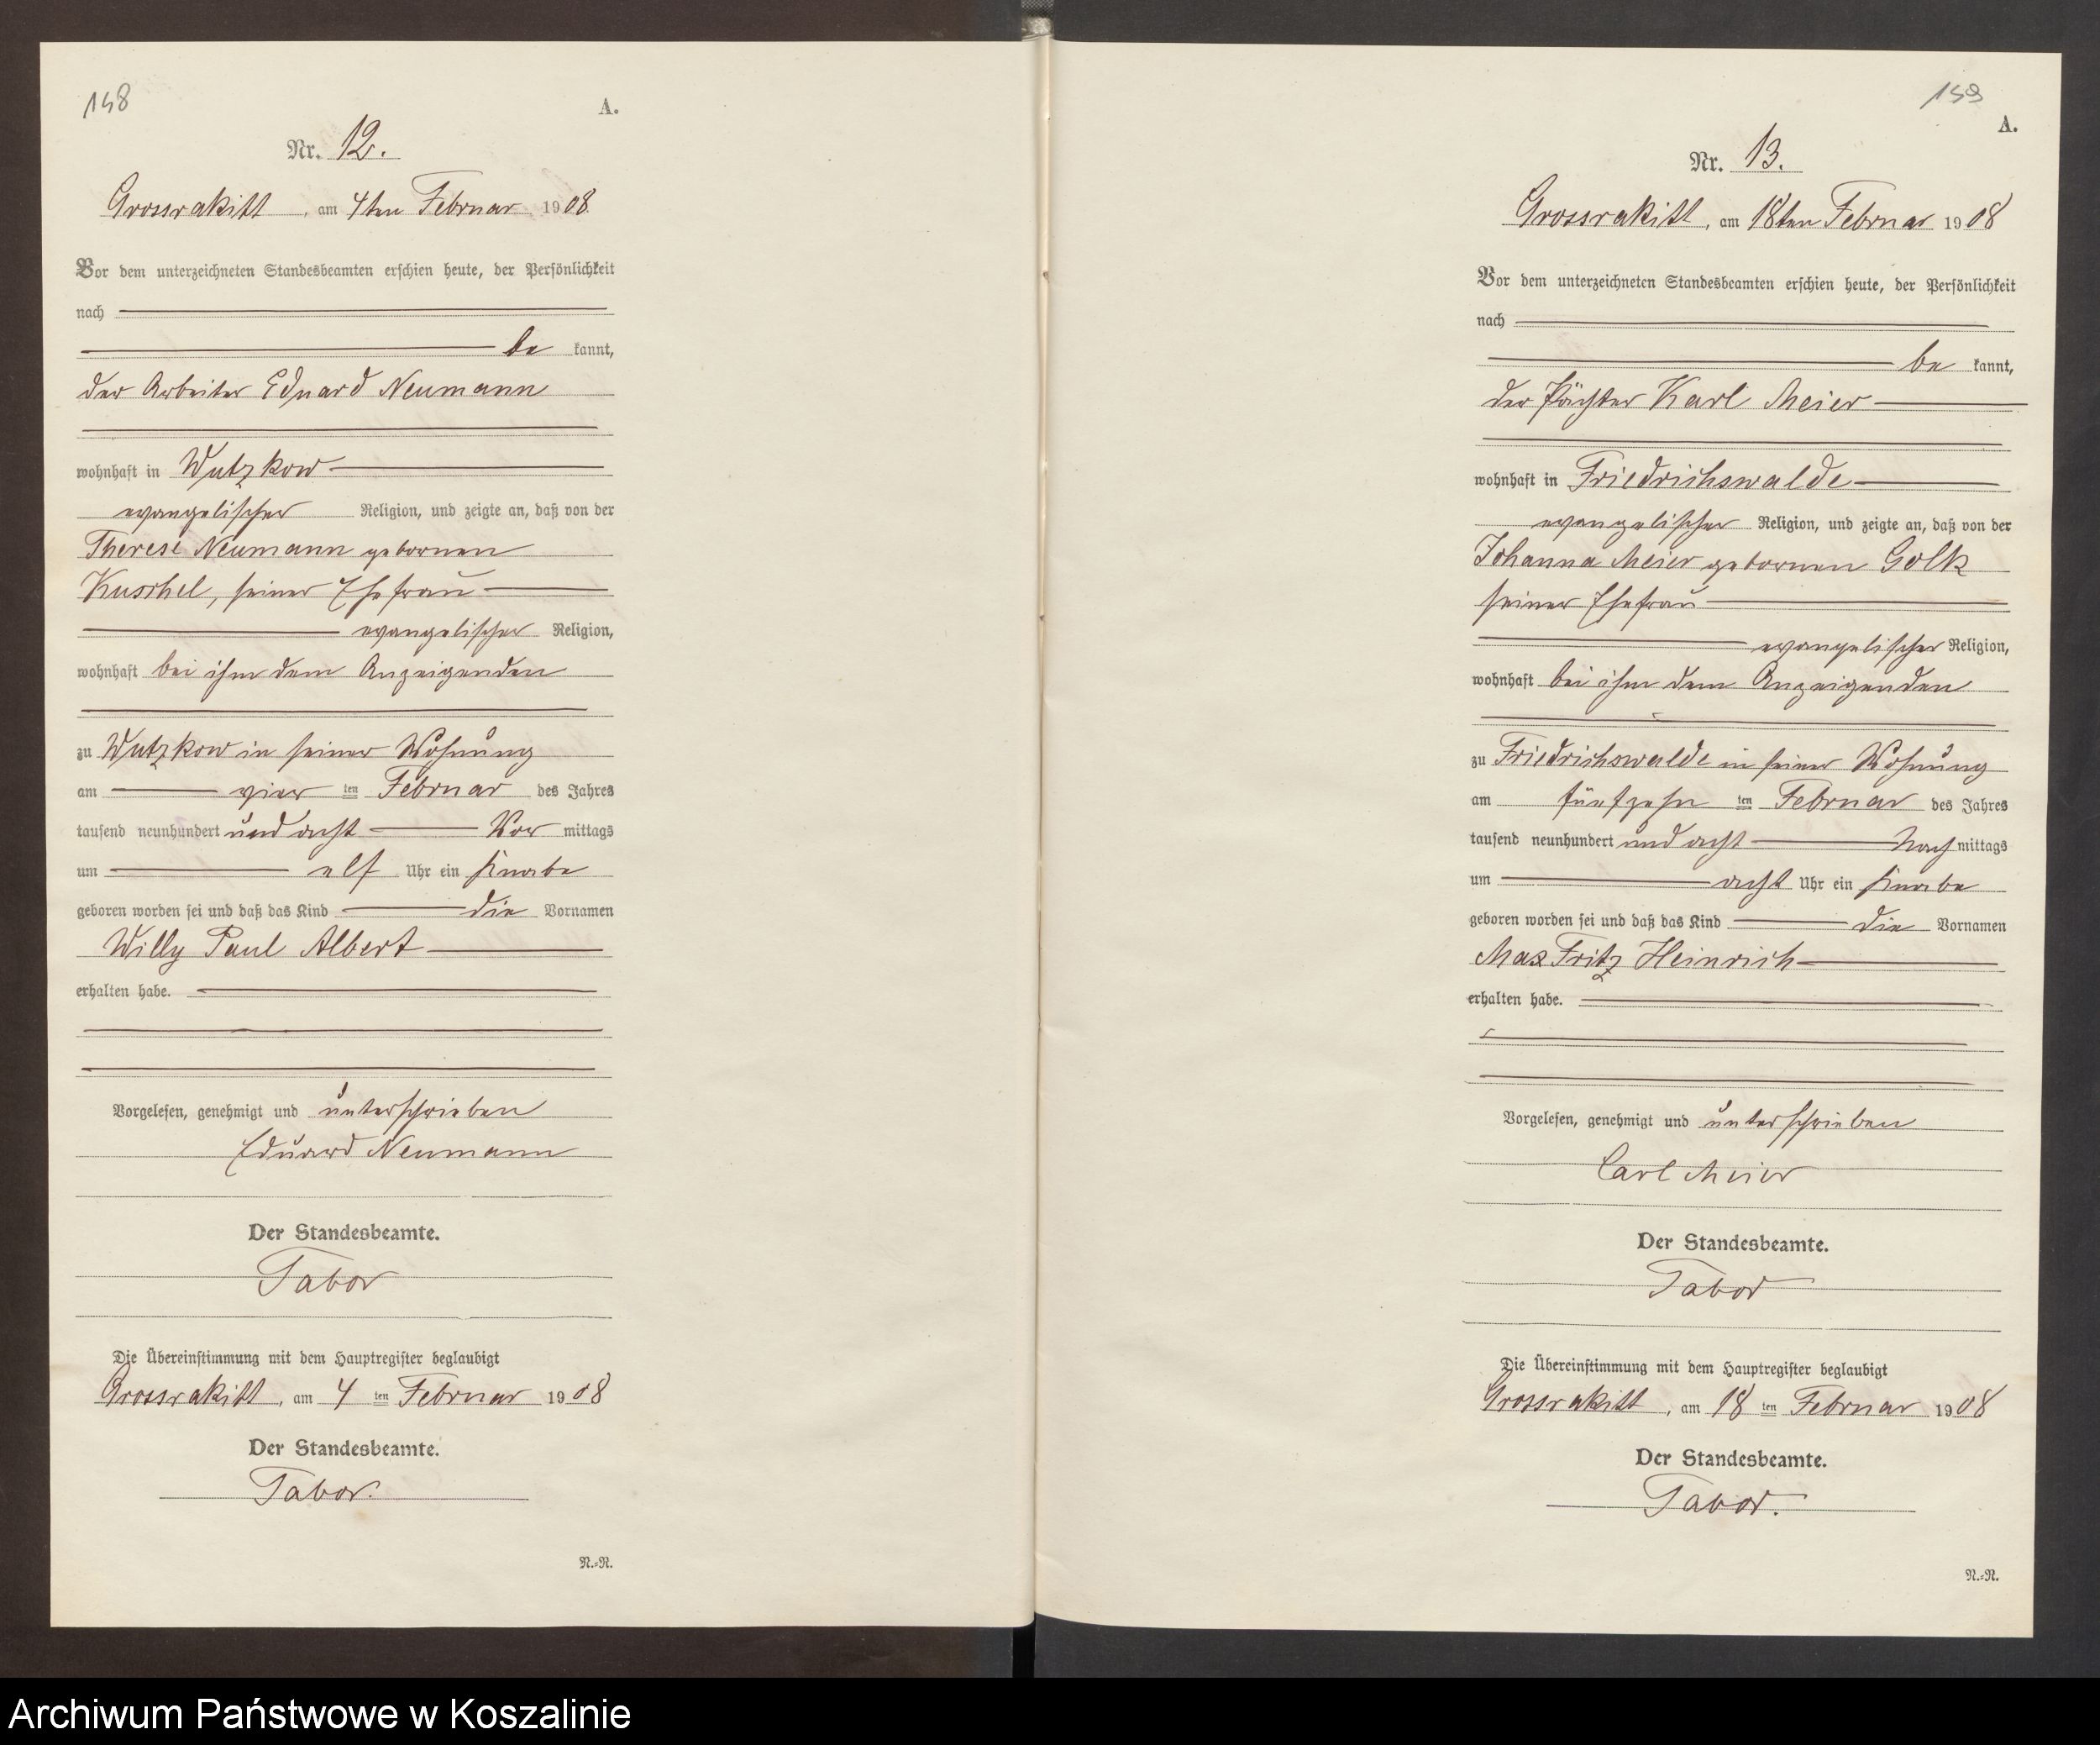 148
A.
Nr. 12.
Grossrakitt, am 4ten Februar 1908
Vor dem unterzeichneten Standesbeamten erschien heute, der Persönlichkeit
nach
be kannt,
der Arbeiter Eduard Neumann
wohnhaft in Wutzkow
evangelischer Religion, und zeigte an, daß von der
Therese Neumann gebornen
Kuschel, seiner Ehefrau
evangelischer Religion,
wohnhaft bei ihm dem Anzeigenden
zu Wutzkow in seiner Wohnung
am vier ten Februar des Jahres
tausend neunhundert und acht Vor mittags
um elf Uhr ein Knabe
geboren worden sei und daß das Kind die Vornamen
Willy Paul Albert
erhalten habe.
Vorgelesen, genehmigt und unterschrieben
Eduard Neumann
Der Standesbeamte.
Tabor
Die Übereinstimmung mit dem Hauptregister beglaubigt
Grossrakitt, am 4 ten Februar 1908
Der Standesbeamte.
Tabor.
N.=N.
159
A.
Nr. 13.
Grossrakitt, am 18ten Februar 1908
Vor dem unterzeichneten Standesbeamten erschien heute, der Persönlichkeit
nach
be kannt,
der Pächter Karl Meier
wohnhaft in Friedrichswalde
evangelischer Religion, und zeigte an, daß von der
Johanna Meier gebornen Golk
seiner Ehefrau
evangelischer Religion,
wohnhaft bei ihm dem Anzeigenden
zu Friedrichswalde in seiner Wohnung
am fünfzehn ten Februar des Jahres
tausend neunhundert und acht Nach mittags
um acht Uhr ein Knabe
geboren worden sei und daß das Kind die Vornamen
Max Fritz Heinrich
erhalten habe.
Vorgelesen, genehmigt und unterschrieben
Carl Meier
Der Standesbeamte.
Tabor
Die Übereinstimmung mit dem Hauptregister beglaubigt
Grossrakitt, am 18 ten Februar 1908
Der Standesbeamte.
Tabor.
N.=N.
Archiwum Państwowe w Koszalinie